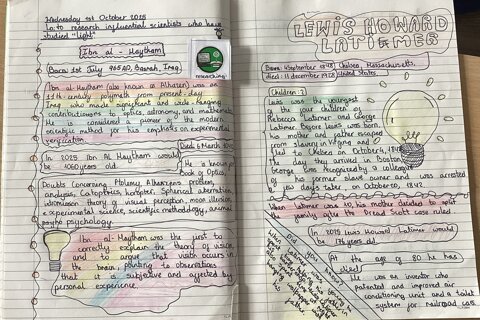 Wednesday 1st October 2025
Lo: to research influential scientists who have
studied "light"
Ibn al-Haytham
Born: 1st July 965 AD, Basrah, Iraq.
researching
Ibn al-Haytham (also known as Alhazen) was an
11th-century polymath from present-day
Iraq who made significant and wide-ranging
contributions to optics, astronomy, and mathematics.
He is considered a pioneer of the modern
scientific method for his emphasis on experimental
verification.
Died 6 March 1040
In 2025 Ibn AL Haytham would
be 1060 years old.
He is known for
Book of Optics,
Doubts Concerning Ptolemy, Alhazen's problem,
Analysis, Catoptrics, horopter, Spherical aberration,
intromission theory of visual perception, moon illusion,
experimental science, scientific methodology, animal
psychology
Ibn al-Haytham was the first to
correctly explain the theory of vision,
and to argue that vision occurs in
the brain, pointing to observations
that it is subjective and affected by
personal experience.
LEWIS HOWARD
LATIMER
Born: 4 September 1848 Chelsea, Massachusetts,
died: 11 December 1928 United States
Children: 2
Lewis was the youngest
of the four children of
Rebecca Latimer and George
Latimer. Before Lewis was born,
his mother and father escaped
from slavery in Virginia and
fled to Chelsea on October 4, 1842.
the day they arrived in Boston,
George was recognized by a colleague
of his former slave owner and was arrested
a few days later, on October 20, 1842.
When Latimer was 10, his mother decided to split
the family after the Dread Scott case ruled
Did you know?
In 2025 Lewis Howard Latimer would
be 177 years old.
At the age of 80 he has
died
He was an inventor who
patented and improved air
conditioning unit and a toilet
system for railroad cars.